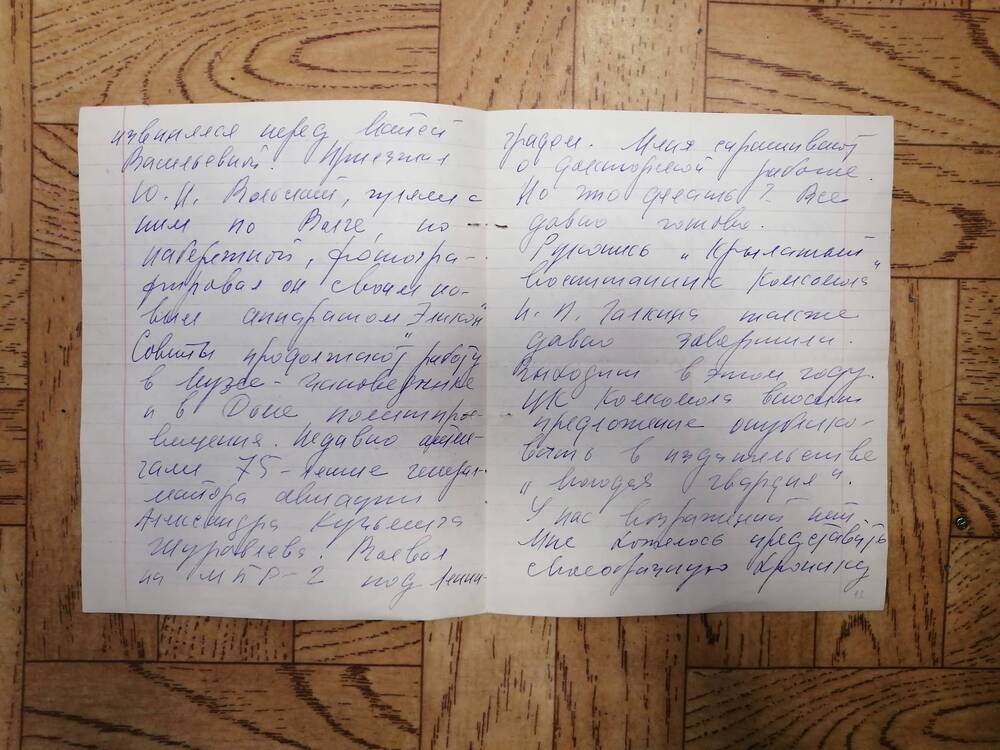 извинялся перед Майей
Васильевной. Приезжал
Ю. Н. Вольский, гуляли с
ним по Волге, по
набережной, фотогра-
фировал он своим но-
вым аппаратом „Эликон"
Советы продолжают работу
в Музее-Заповеднике
и в Доме политпрос-
вещения. Недавно отме-
чали 75-летие генерал-
майора авиации
Александра Кузьмича
Журавлева. Воевал
на МБР-2 под Ленин-
градом. Меня спрашивают
о докторской работе.
Но что делать? Все
давно готово.
Рукопись „Крылатый
воспитанник Комсомола"
И. П. Галкина также
давно завершили.
Выходит в этом году.
ЦК Комсомола вносит
предложение опублико-
вать в издательстве
„Молодая гвардия".
У нас возражений нет.
Мне хотелось представить
своеобразную хронику